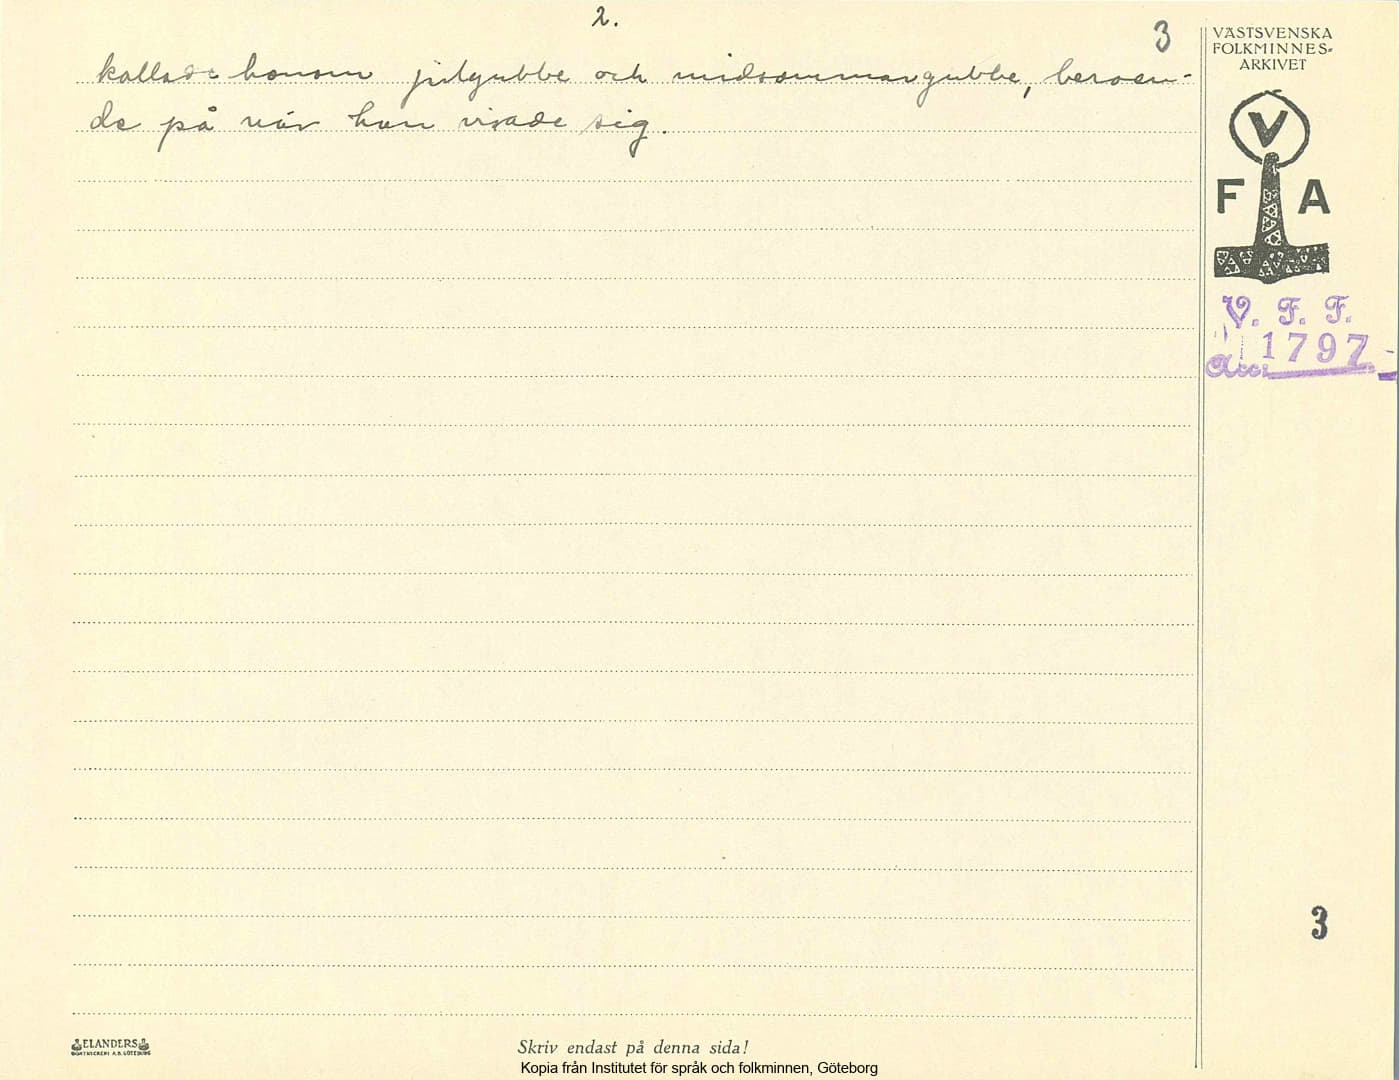 2.
3
kallade honom julgubbe och midsommargubbe, beroen-
de på när han visade sig.
VÄSTSVENSKA
FOLKMINNES-
ARKIVET
V
F A
V. F. F.
Acc. 1797
3
ELANDERS
BOKTRYCKERI A.B. GÖTEBORG
Skriv endast på denna sida!
Kopia från Institutet för språk och folkminnen, Göteborg